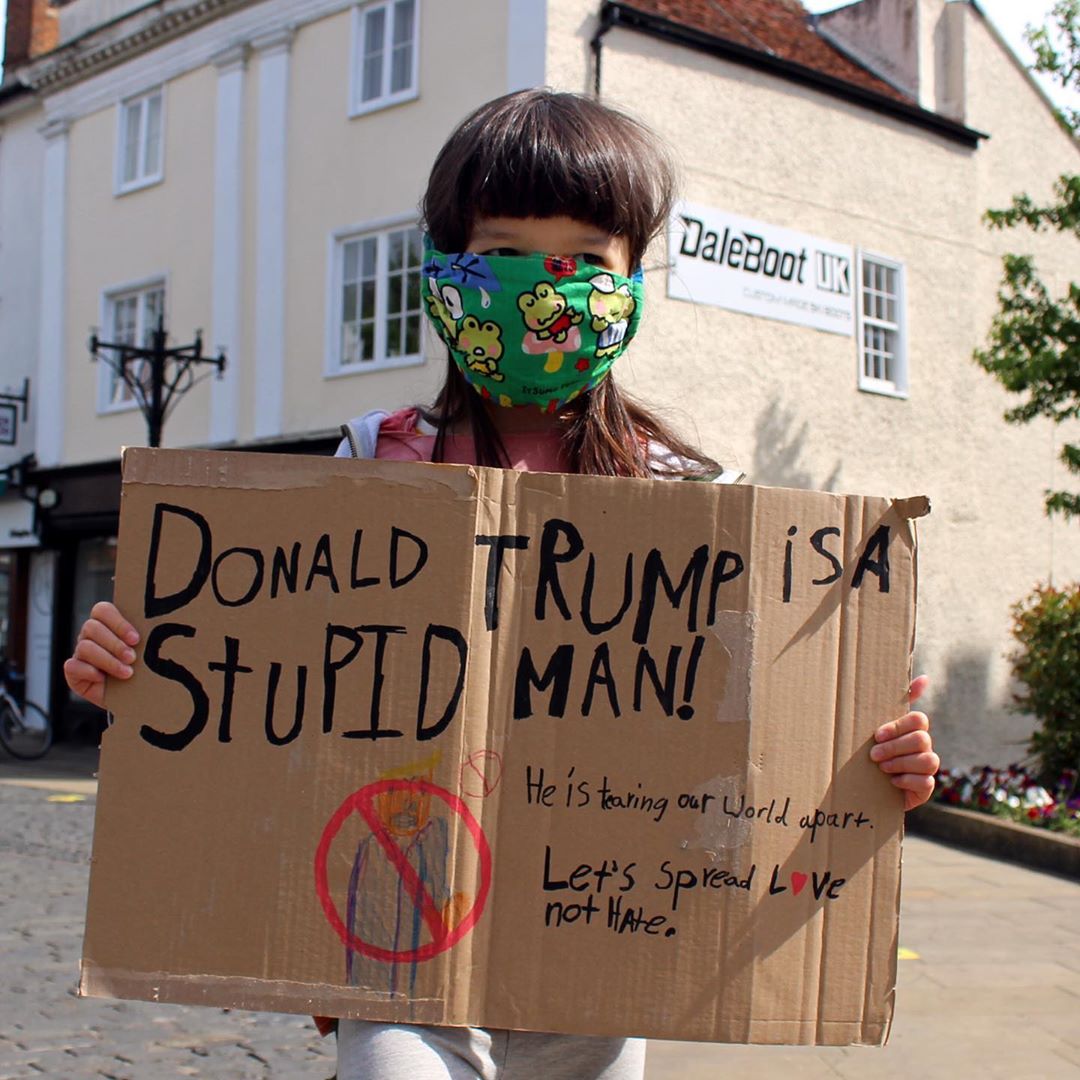 DaleBoot UK
CUSTOM MADE SKI BOOTS
DONALD TRUMP iS A
StUPID MAN!
He is tearing our World apart.
Let's Spread L♥ve
not HAte.